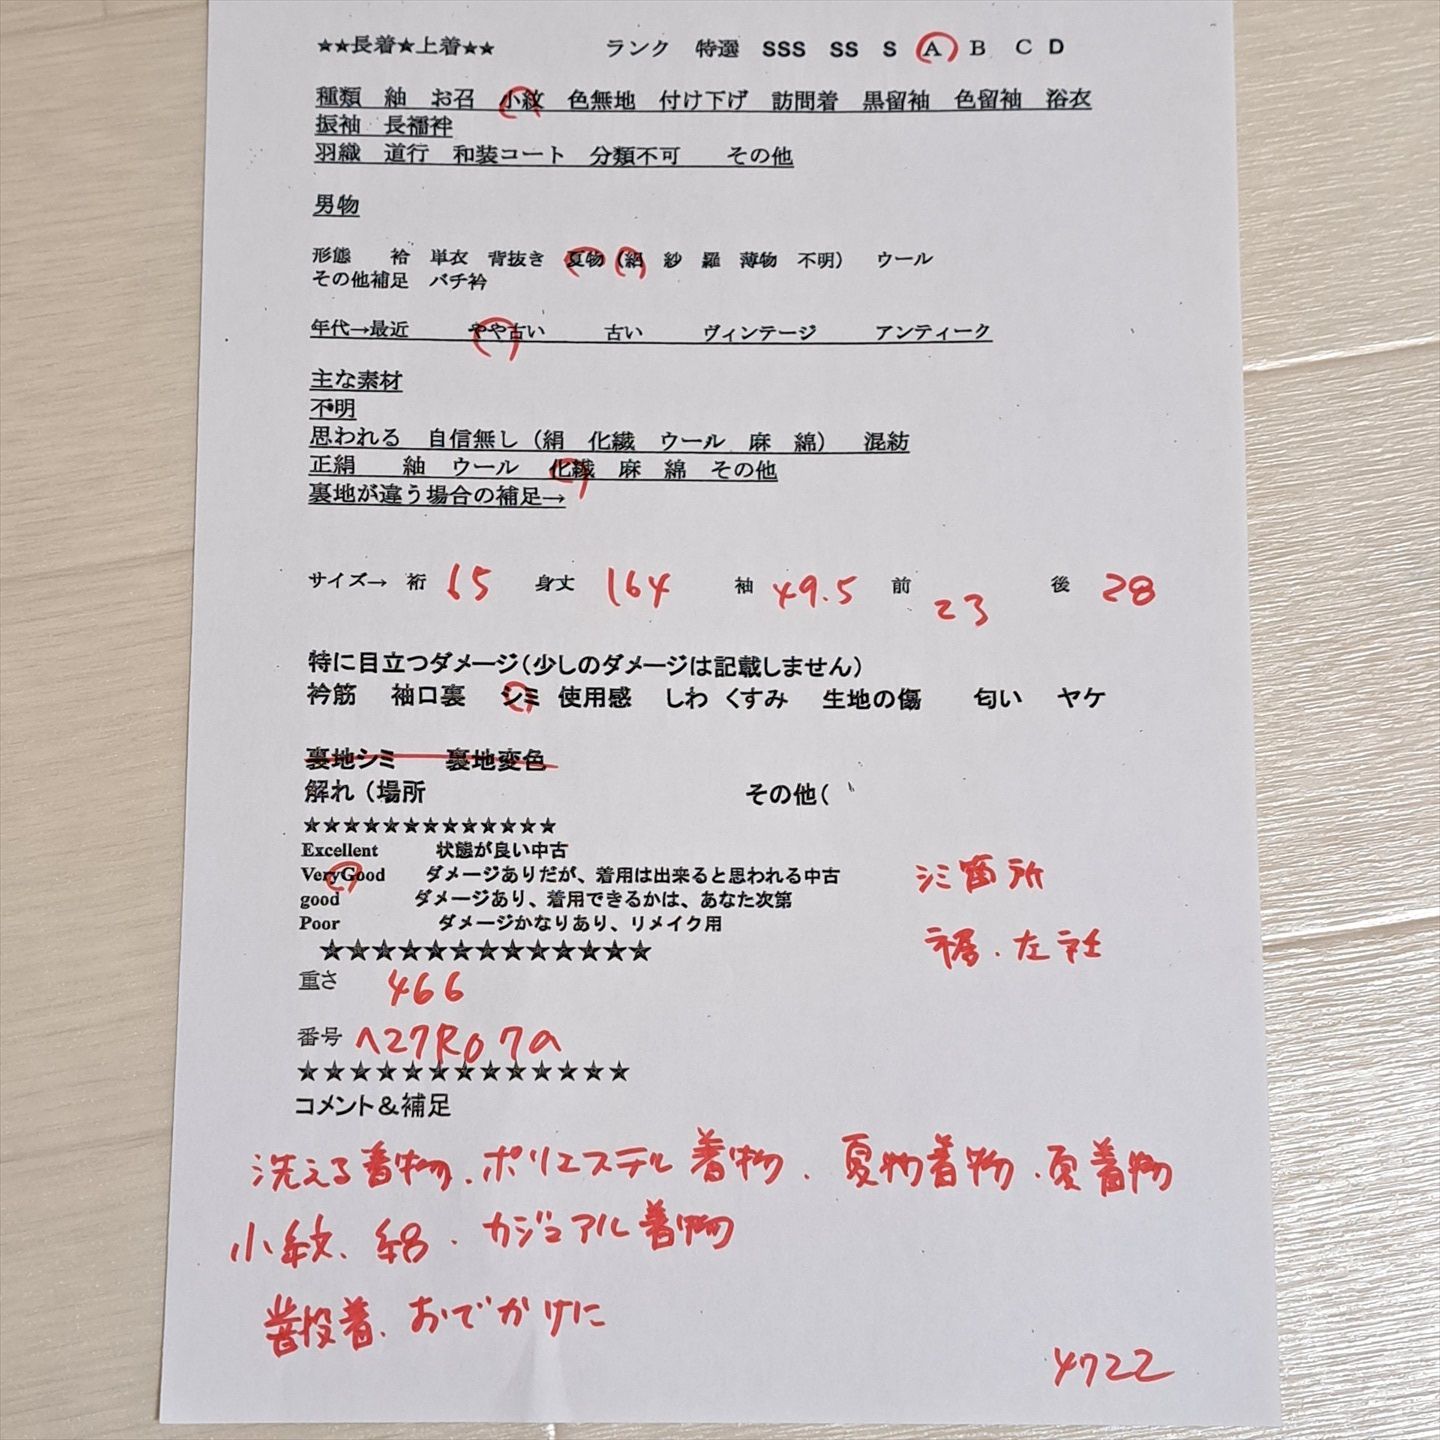 ★★長着★上着★★ ランク 特選 SSS SS S A B C D
種類 紬 お召 小紋 色無地 付け下げ 訪問着 黒留袖 色留袖 浴衣
振袖 長襦袢
羽織 道行 和装コート 分類不可 その他
男物
形態 袷 単衣 背抜き 夏物 (絽 紗 羅 薄物 不明) ウール
その他補足 バチ衿
年代→最近 やや古い 古い ヴィンテージ アンティーク
主な素材
不明
思われる 自信無し (絹 化繊 ウール 麻 綿) 混紡
正絹 紬 ウール 化繊 麻 綿 その他
裏地が違う場合の補足→
サイズ→ 裄 65 身丈 164 袖 49.5 前 23 後 28
特に目立つダメージ(少しのダメージは記載しません)
衿筋 袖口裏 シミ 使用感 しわ くすみ 生地の傷 匂い ヤケ
裏地シミ 裏地変色
解れ (場所 その他(
★★★★★★★★★★★★★
Excellent 状態が良い中古
VeryGood ダメージありだが、着用は出来ると思われる中古
good ダメージあり、着用できるかは、あなた次第
Poor ダメージかなりあり、リメイク用
シミ箇所
裾、左衽
★★★★★★★★★★★★★
重さ 466
番号 ヘ27R07a
★★★★★★★★★★★★★
コメント&補足
洗える着物、ポリエステル着物、夏物着物、夏着物
小紋、絽、カジュアル着物
普段着、おでかけに
4722